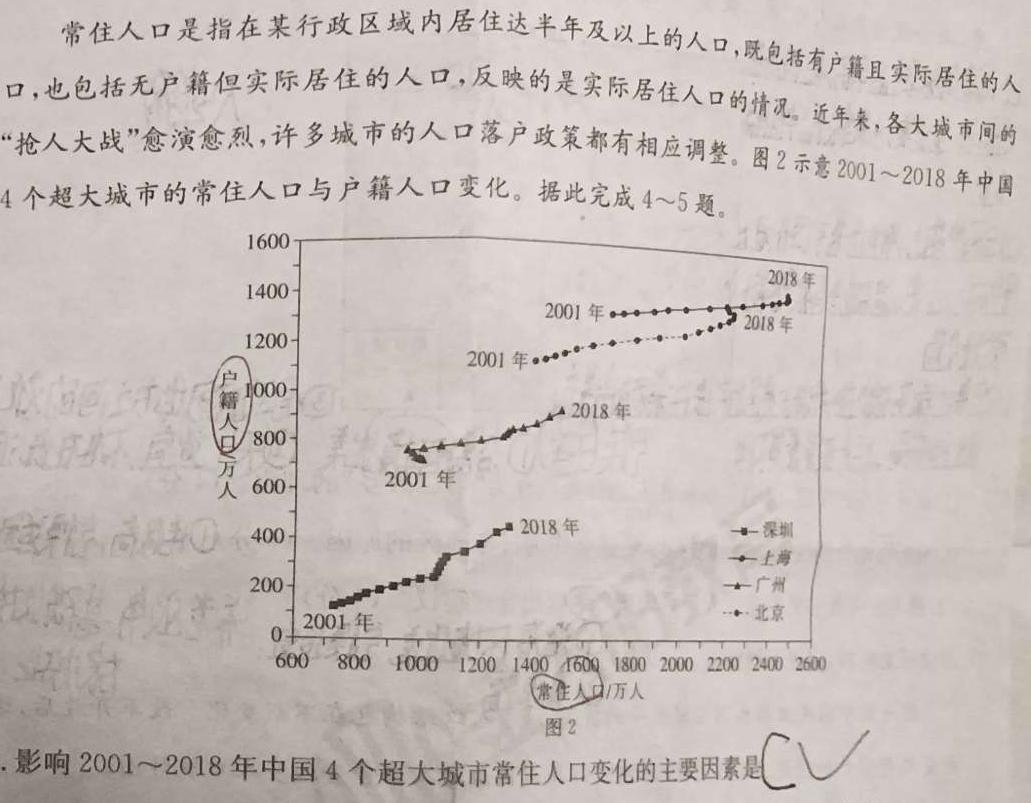 常住人口是指在某行政区域内居住达半年及以上的人口,既包括有户籍且实际居住的人
口,也包括无户籍但实际居住的人口,反映的是实际居住人口的情况。近年来,各大城市间的
“抢人大战”愈演愈烈,许多城市的人口落户政策都有相应调整。图2示意2001～2018年中国
4个超大城市的常住人口与户籍人口变化。据此完成4～5题。
1600
1400
1200
1000
800
600
400
200
0
户籍人口/万人
2018年
2001年
2018年
2001年
2018年
2001年
2018年
2001年
深圳
上海
广州
北京
600 800 1000 1200 1400 1600 1800 2000 2200 2400 2600
常住人口/万人
图2
.影响2001～2018年中国4个超大城市常住人口变化的主要因素是 C